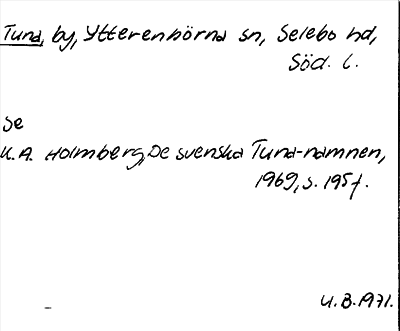 Tuna, by, Ytterenhörna sn, Selebo hd,
Söd. l.
Se
K.A. Holmberg, De svenska Tuna-namnen,
1969, s. 195f.
K.B. 1971.